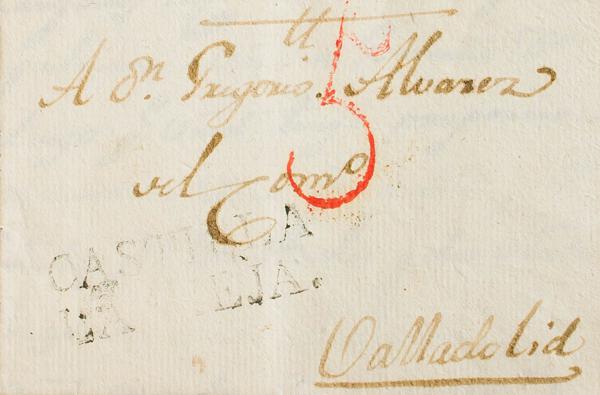 tt
5
A Dn. Grigorio Alvarez
del Como
CASTILLA
LA EJA.
Valladolid